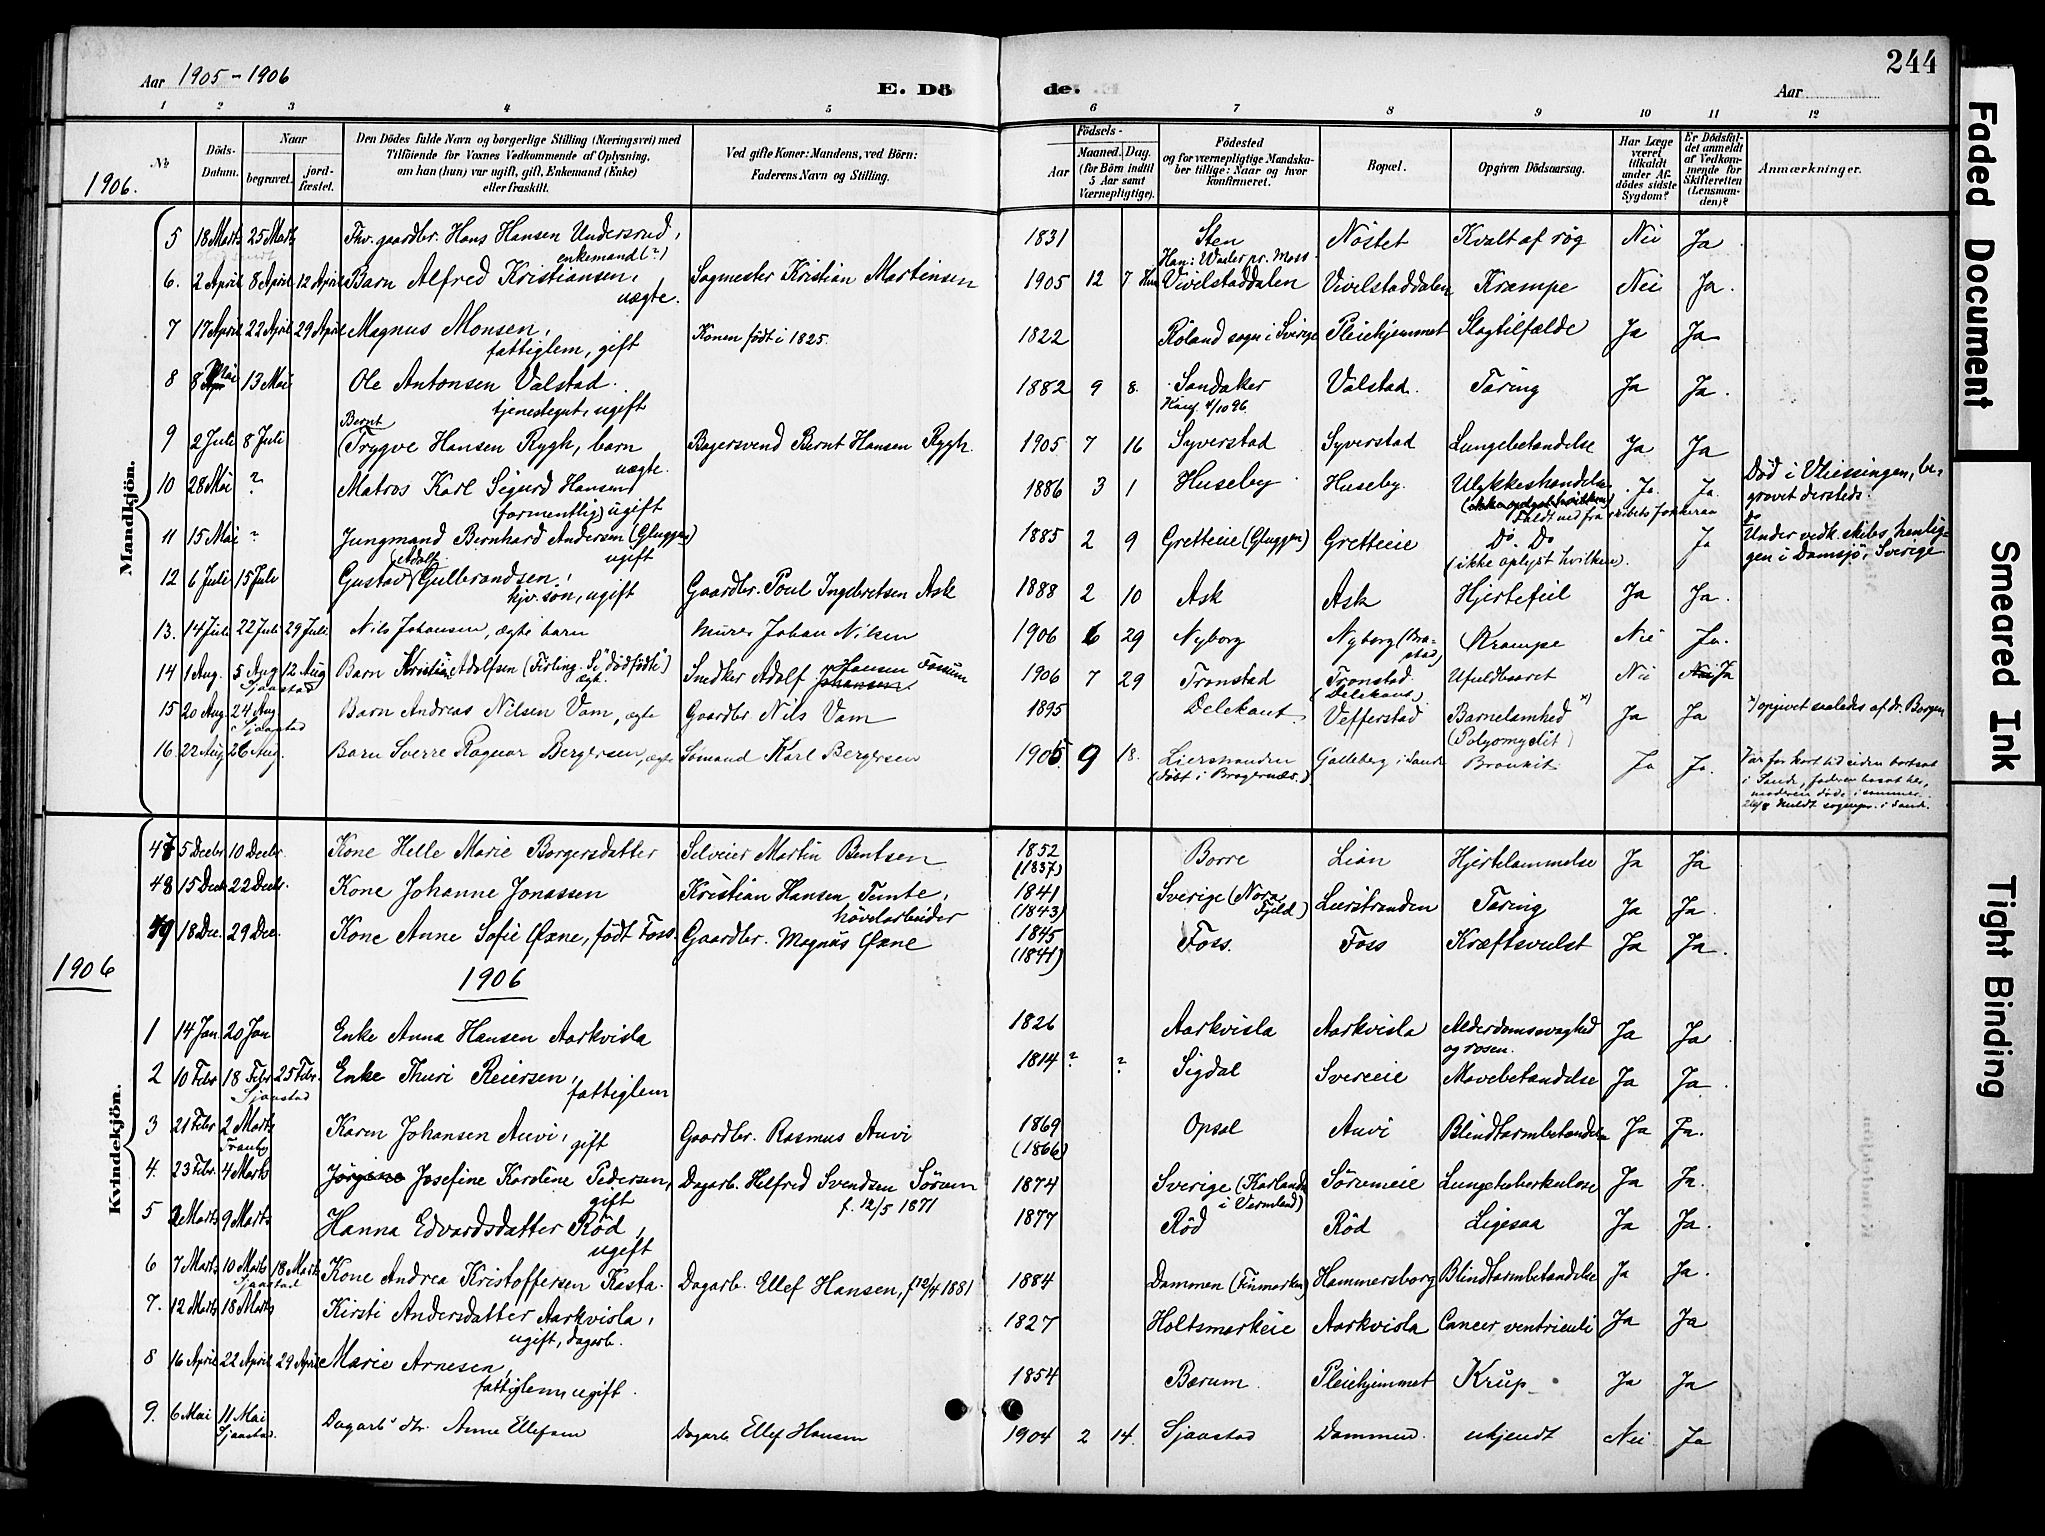 244
Aar 1905-1906
E. Dö
de.
Aar
1 2 3 4 5 6 7 8 9 10 11 12
No
Döds-Datum.
Naar
begravet.
jord-fæstet.
Den Dödes fulde Navn og borgerlige Stilling (Næringsvei) med
Tilföiende for Voxnes Vedkommende af Oplysning,
om han (hun) var ugift, gift, Enkemand (Enke)
eller fraskilt.
Ved gifte Koner: Mandens, ved Börn:
Faderens Navn og Stilling.
Födsels-
Aar
Maaned. Dag.
(for Börn indtil
5 Aar samt
Værnepligtige).
Födested
og for værnepligtige Mandska-
ber tillige: Naar og hvor
konfirmeret.
Bopæl.
Opgiven Dödsaarsag.
Har Læge
været
tilkaldt
under Af-
dödes sidste
Sygdom?
Er Dödsfal-
det anmeldt
af Vedkom-
mende for
Skifteretten
(Lensman-
den)?
Anmærkninger.
1906.
Mandkjön.
5 18 Marts 25 Marts Fhv. gaardbr. Hans Hansen Undersrud, enkemand(?) 1831 Sten Nöstet Kvalt af røg Nei Ja
6. 2 April 8 April 12 April Barn Alfred Kristiansen, uægte. Sagmester Kristian Martinsen 1905 12 7 Han: Vaaler pr. Moss Hun Vivelstaddalen Vivelstaddalen Krampe Nei Ja.
7 17 April 22 April 29 April Magnus Monsen, fattiglem, gift Konen født i 1825. 1822 Röland sogn i Sverige Pleiehjemmet Slagtilfælde Ja Ja
8 8 Mai 13 Mai Ole Antonsen Valstad. tjenestegut, ugift 1882 9 8. Sandaker Konf. 4/10 96. Valstad. Tæring Ja Ja.
9 2 Juli 8 Juli Bernt Trygve Hansen Rygh, barn uægte. Bagersvend Bernt Hansen Rygh. 1905 7 16 Syverstad Syverstad Lungebetændelse Ja Ja
10 28 Mai ? Matros Karl Sigurd Hansen, (formentlig) ugift 1886 3 1 Huseby Huseby. Ulykkeshændelse Faldt ned fra skibets fokkeraa Ja. Ja. Död i Vliessingen, be-
gravet dersteds.
11 15 Mai ? Jungmand Bernhard Andersen (Gluggen) ugift 1885 2 9 Gretteeie (Gluggen) Gretteeie Do. Do (ikke oplyst hvilken). Ja Do Under vedk. skibs henlig-
gen i Domsjö, Sverige
12 6 Juli 15 Juli Gustav Adolf Gulbrandsen, hjv. søn, ugift Gaardbr. Poul Ingebretsen Ask 1888 2 10 Ask Ask Hjertefeil Ja Ja.
13. 14 Juli 22 Juli 29 Juli Nils Johansen, ægte barn Murer Johan Nilsen 1906 6 29 Nyborg Nyborg (Bra-
stad) Krampe Nei Ja.
14 1 Aug. 5 Aug Sjaastad 12 Aug Barn Kristian Adolfsen (Tvilling. Se "dödfödte") ægt. Snedker Adolf Johansen Hansen Fossum 1906 7 29 Tronstad Tronstad (Delekaut) Ufuldbaaret Nei Nei Ja
15 20 Aug. 24 Aug i Sjaastad Barn Andreas Nilsen Vam, ægte Gaardbr Nils Vam 1895 Delekaut Vefferstad Barnelamhed x) (Polyomyelit) Ja Ja x) opgivet saaledes af dr. Borgen
16. 22 Aug 26 Aug. Barn Sverre Ragnar Bergersen, ægte Sömand Karl Bergersen 1905 9 18. Lierstranden (Födt i Bragernæs). Galleberg i Sande Bronkit. Ja Ja. Var for kort tid siden bortsat
i Sande, faderen bosat her,
moderen döde i sommer.
Kvindekjön.
47 5 Decbr 10 Decbr. Kone Helle Marie Borgersdatter Selveier Martin Bentsen 1852 (1837) Borre Lian Hjertelammelse Ja Ja
48 15 Dec 22 Decbr. Kone Johanne Jonassen Kristian Hansen Tunte, hövelarbeider 1841 (1843) Sverige (Nora Fjeld) Lierstranden Tæring Ja Ja.
49 18 Dec. 29 Dec. Kone Anne Sofie Øxne, født Foss. Gaardbr. Magnus Øxne 1845 (1841) Foss. Foss Kræftsvulst Ja Ja.
1906
1906
1 14 Jan 20 Jan Enke Anna Hansen Aarkvisla 1826 Aarkvisla Aarkvisla Alderdomssvaghed og rosen. Ja Ja
2 10 Febr 18 Febr Sjaastad 25 Febr. Enke Thuri Reiersen, fattiglem 1814 ? ? Sigdal Svereeie Mavebetændelse Ja Ja.
3 21 Febr 2 Marts Tranby Karen Johansen Auvi, gift Gaardbr. Rasmus Auvi 1869 (1866) Opsal Auvi Blindtarmbetændelse Ja Ja.
4. 23 Febr. 4 Marts Jørgine Josefine Karoline Pedersen, gift Dagarb. Helfred Svendsen Sörum f. 12/5 1871 1874 Sverige (Karlanda i Vermland) Sörumeie Lungetuberkulose Ja Ja.
5 2 Marts 9 Marts Hanna Edvardsdatter Röd, ugift 1877 Röd Röd Ligesaa Ja Ja.
6 7 Marts 10 Marts Sjaastad 18 Marts Kone Andrea Kristoffersen Kasta. Dagarb. Ellef Hansen, f 12/4 1881 1884 Dammen (Finmarken) Hammersborg Blindtarmbetændelse Ja Ja.
7. 12 Marts 18 Marts Kirsti Andersdatter Aarkvisla, ugift, dagarb. 1827 Holtsmarkeie Aarkvisla Cancer ventriculi Ja Ja
8 16 April 22 April 29 April Marie Arnesen, fattiglem, ugift. 1854 Bærum. Pleiehjemmet Krup. Ja Ja
9. 6 Mai 11 Mai Sjaastad. Dagarbs dtr. Anne Ellefsen Dagarb Ellef Hansen 1904 2 14. Sjaastad Dammen. ukjendt Nei. Ja
Faded Document
Smeared Ink
Tight Binding